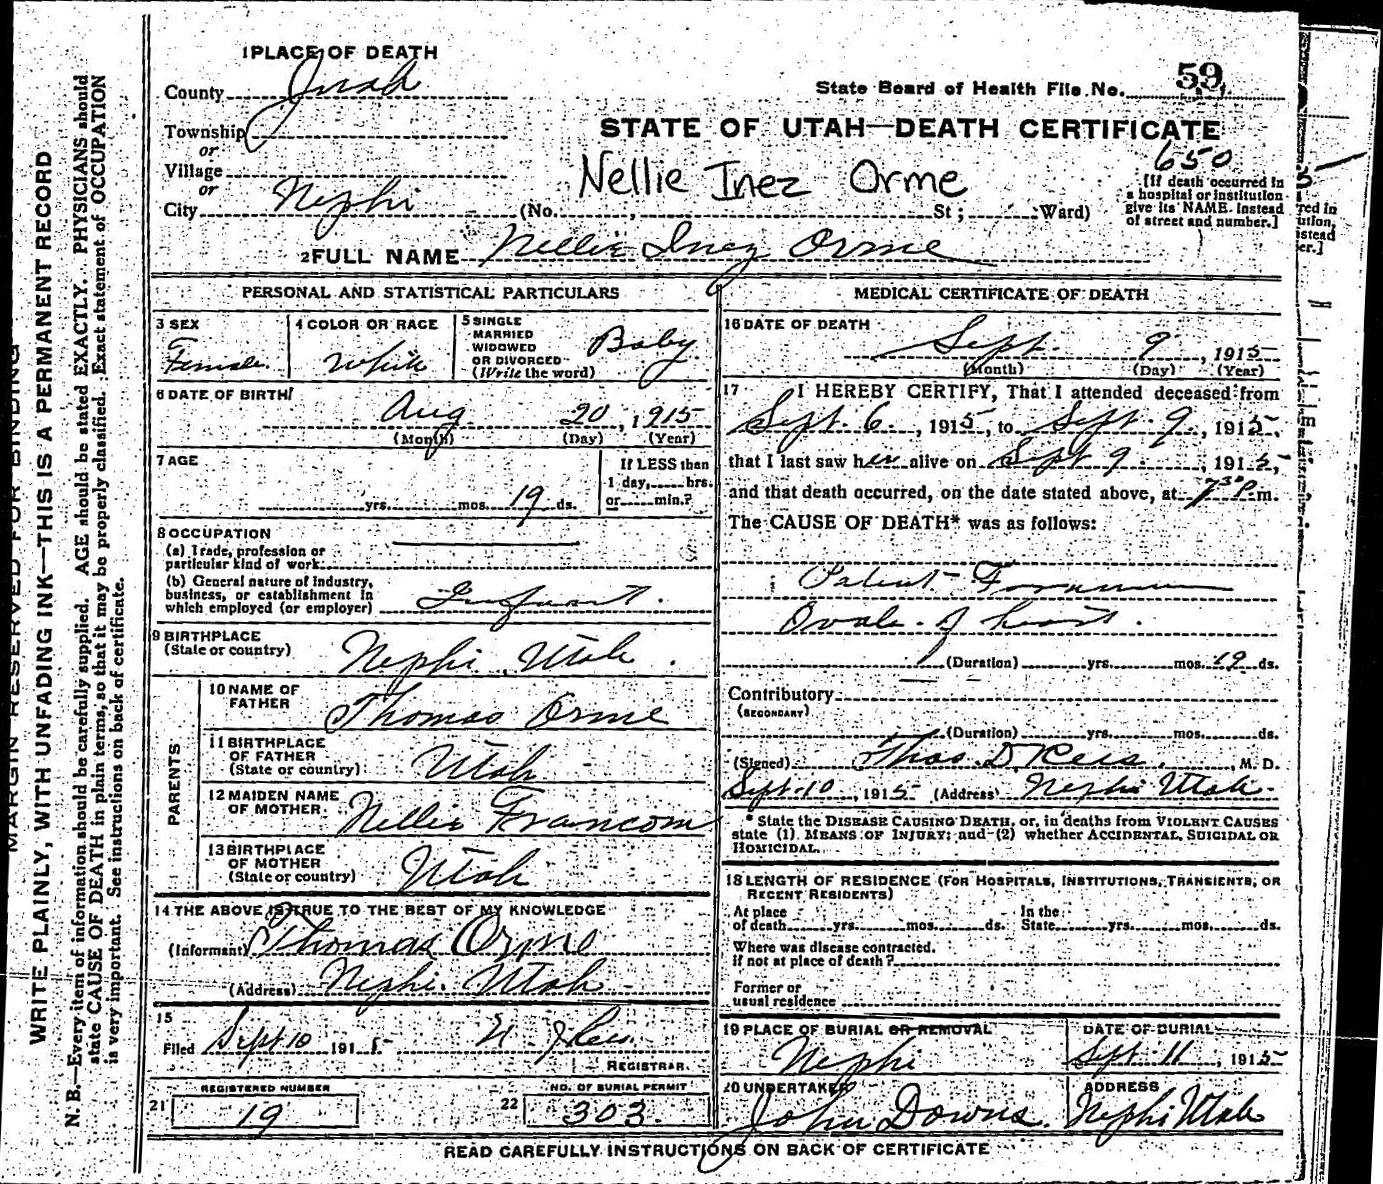 1 PLACE OF DEATH
County Juab
State Board of Health File No. 59
Township
or
Village
or
City Nephi
STATE OF UTAH—DEATH CERTIFICATE
650
Nellie Inez Orme
(No. , St ; Ward)
[If death occurred in
a hospital or institution
give its NAME instead
of street and number.]
2 FULL NAME Nellie Inez Orme
PERSONAL AND STATISTICAL PARTICULARS
3 SEX
Female
4 COLOR OR RACE
White
5 SINGLE
MARRIED
WIDOWED
OR DIVORCED
(Write the word)
Baby
6 DATE OF BIRTH
Aug 20, 1915
(Month) (Day) (Year)
7 AGE
yrs. mos. 19 ds.
If LESS than
1 day, hrs.
or min.?
8 OCCUPATION
(a) Trade, profession or
particular kind of work
(b) General nature of industry,
business, or establishment in
which employed (or employer) Infant.
9 BIRTHPLACE
(State or country) Nephi, Utah.
PARENTS
10 NAME OF
FATHER Thomas Orme
11 BIRTHPLACE
OF FATHER
(State or country) Utah
12 MAIDEN NAME
OF MOTHER Nellie Francom
13 BIRTHPLACE
OF MOTHER
(State or country) Utah
14 THE ABOVE IS TRUE TO THE BEST OF MY KNOWLEDGE
(Informant) Thomas Orme
(Address) Nephi. Utah
15
Filed Sept 10 1915
REGISTRAR.
REGISTERED NUMBER
21 19
NO. OF BURIAL PERMIT
22 303
MEDICAL CERTIFICATE OF DEATH
16 DATE OF DEATH
Sept. 9, 1915
(Month) (Day) (Year)
17 I HEREBY CERTIFY, That I attended deceased from
Sept. 6, 1915, to Sept. 9, 1915,
that I last saw her alive on Sept 9, 1915,
and that death occurred, on the date stated above, at 7 30 P. m.
The CAUSE OF DEATH* was as follows:
Patent Foramen
Ovale of heart.
(Duration) yrs. mos. 19 ds.
Contributory
(SECONDARY)
(Duration) yrs. mos. ds.
(Signed) Thos. D. Rees, M. D.
Sept. 10, 1915 (Address) Nephi Utah.
* State the DISEASE CAUSING DEATH, or, in deaths from VIOLENT CAUSES
state (1) MEANS OF INJURY; and (2) whether ACCIDENTAL, SUICIDAL OR
HOMICIDAL.
18 LENGTH OF RESIDENCE (FOR HOSPITALS, INSTITUTIONS, TRANSIENTS, OR
RECENT RESIDENTS)
At place
of death yrs. mos. ds.
In the
State yrs. mos. ds.
Where was disease contracted,
if not at place of death?
Former or
usual residence
19 PLACE OF BURIAL OR REMOVAL
Nephi
DATE OF BURIAL
Sept. 11, 1915
20 UNDERTAKER
John Downs.
ADDRESS
Nephi Utah
READ CAREFULLY INSTRUCTIONS ON BACK OF CERTIFICATE
MARGIN RESERVED FOR BINDING
WRITE PLAINLY, WITH UNFADING INK—THIS IS A PERMANENT RECORD
N. B.—Every item of information should be carefully supplied. AGE should be stated EXACTLY. PHYSICIANS should
state CAUSE OF DEATH in plain terms, so that it may be properly classified. Exact statement of OCCUPATION
is very important. See instructions on back of certificate.
red in
ution,
stead
er.]